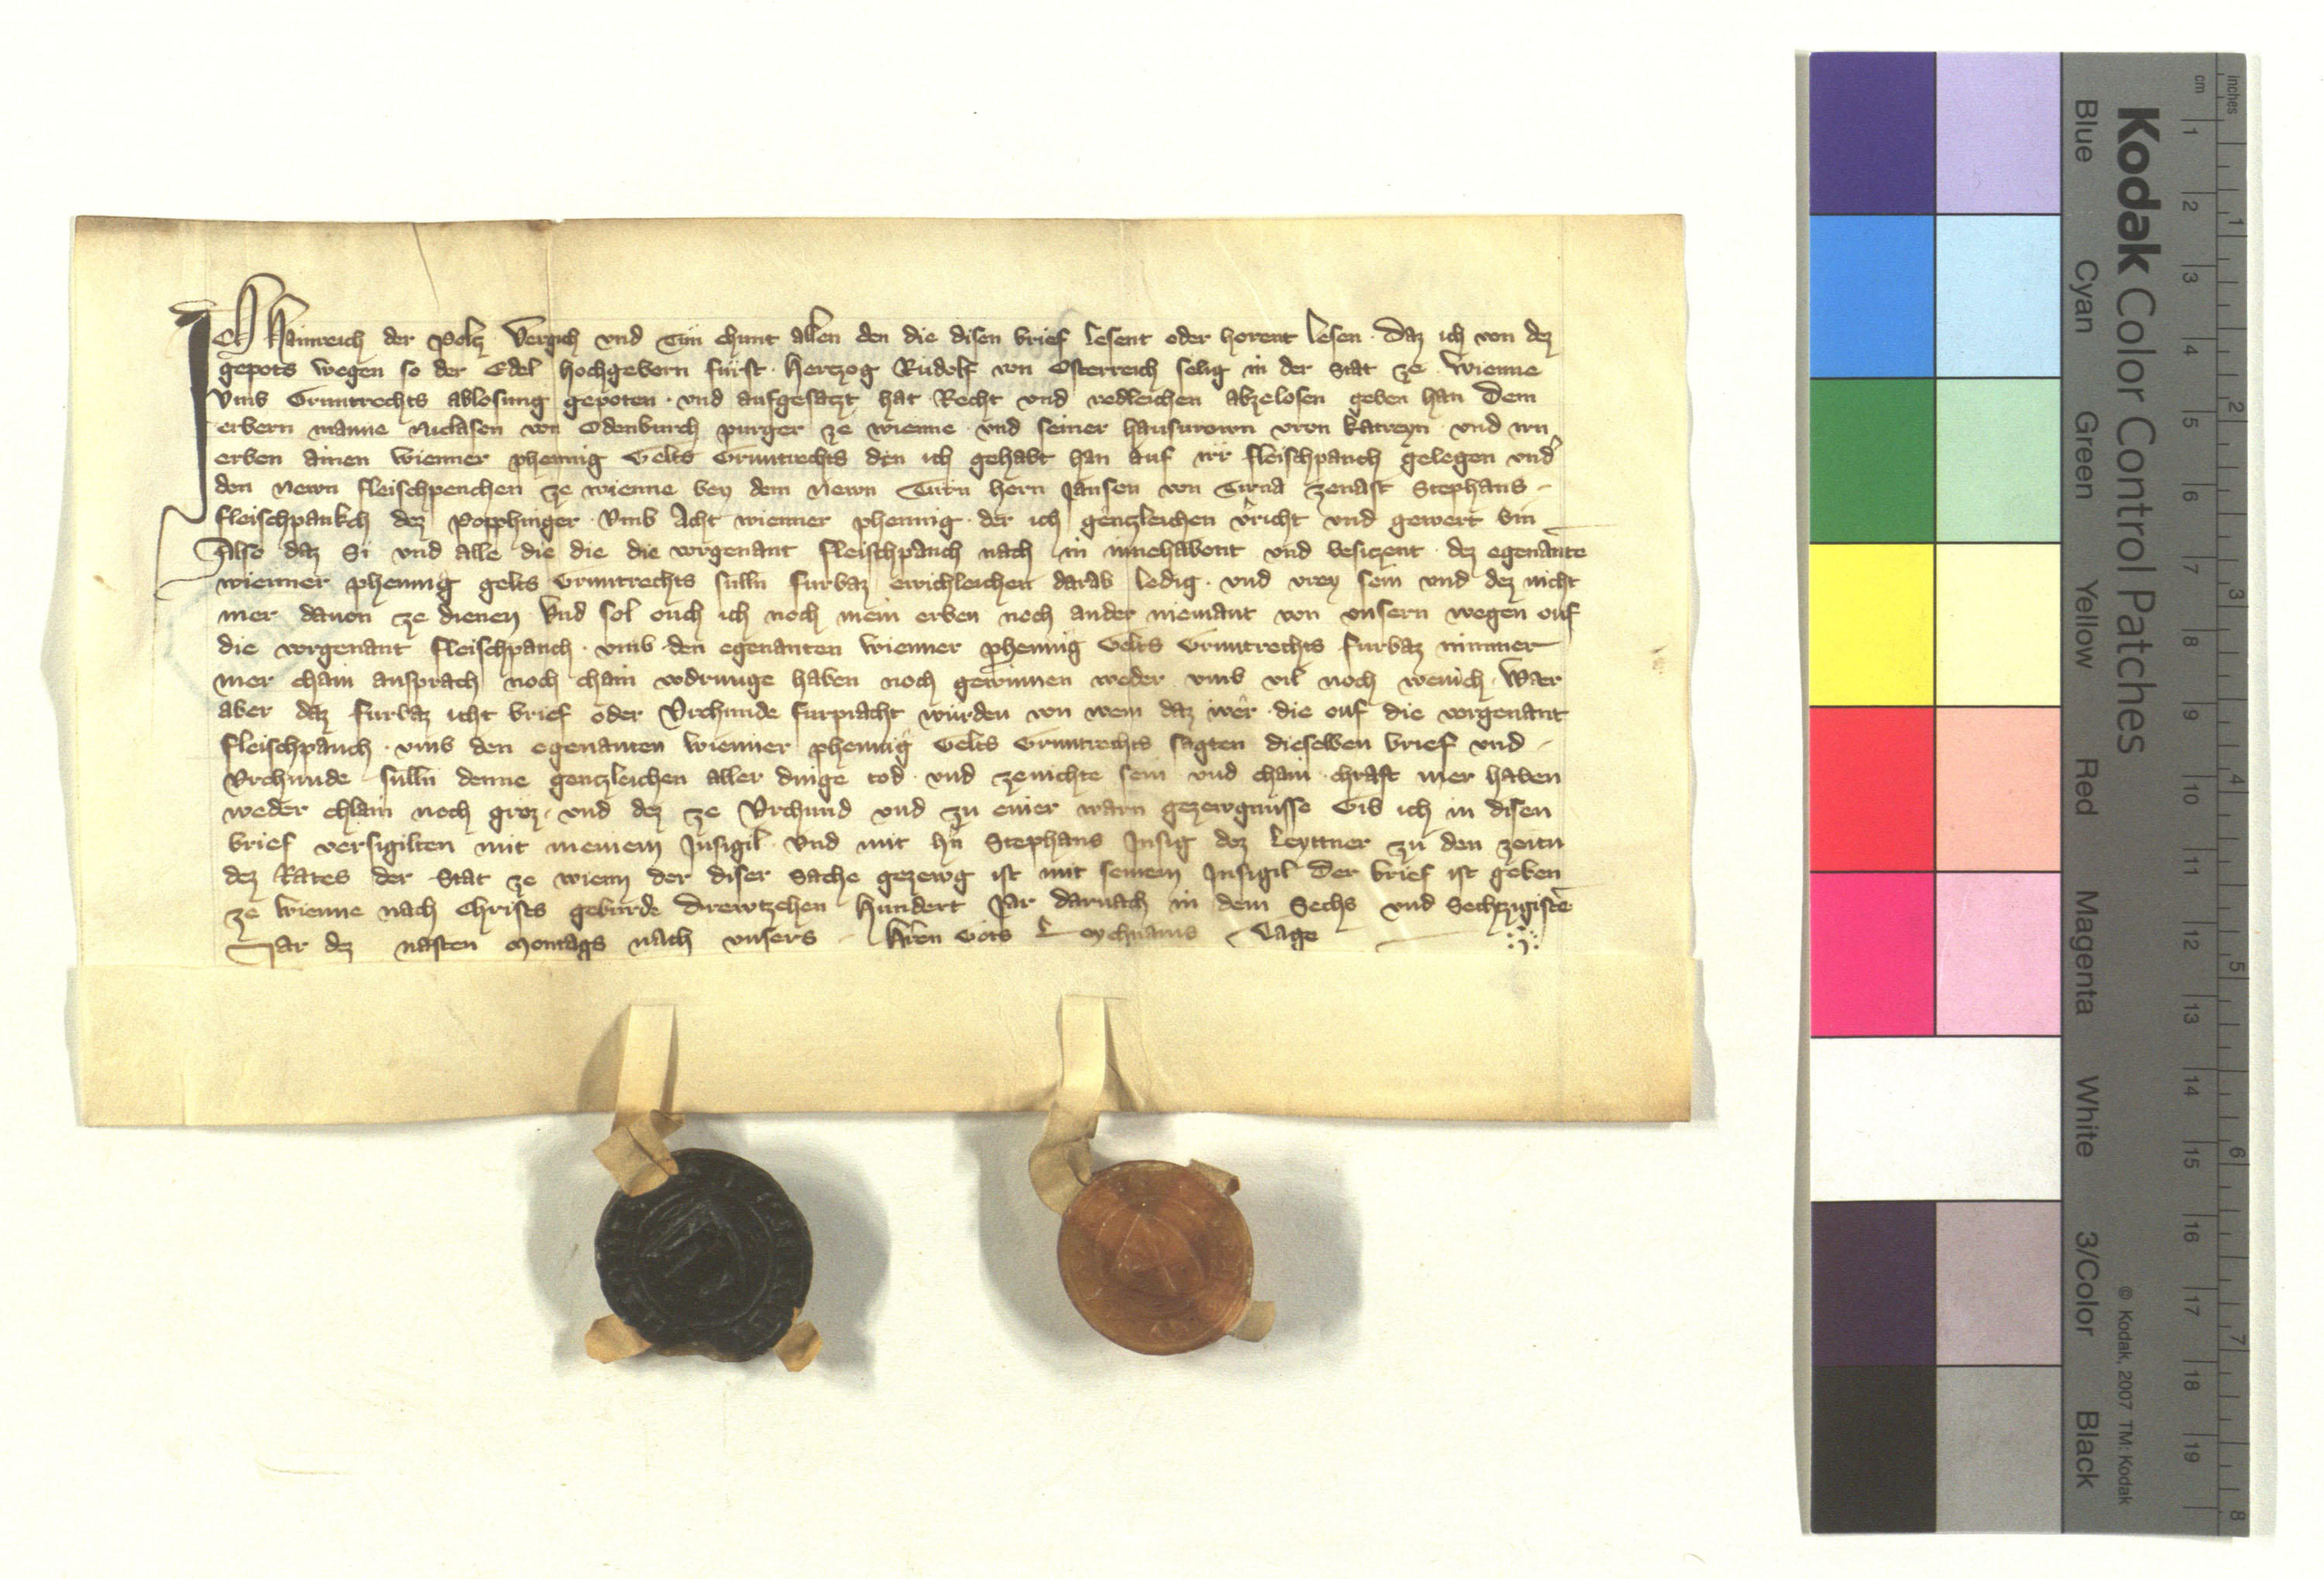 ICh Hainreich der Polz Vergich und Tůn chunt allen den die disen brief lesent oder horent lesen · Daz ich von dez
gepots wegen so der Edel hochgeborn fürst Hertzog Růdolf von Osterreich selig in der Stat ze Wienne
Vmb Gruntrechts ablosung gepoten · vnd aufgesatzt hat Recht vnd redleichen abzelosen geben han Dem
erbern manne Niclasen von Odenburch purger ze wienne vnd seiner hausvrown vron Katreyn vnd irn
erben ainen wienner phennig Gelts Gruntrechts den ich gehabt han auf irr fleischpanch gelegen vnd'
den newn fleischpenchen ze wienne bey dem newn Turn hern Jansen von Tirna zenast Stephans
fleischpankch dez Popphinger · Vmb Acht wienner phennig · der ich gënczleichen v̂richt vnd gewert bin
Also daz Si vnd alle die die die vorgenant fleischpanch nach in innehabent vnd besiczent · dez egenante
wienner phennig gelts Gruntrechts sulln furbaz ewichleichen darab ledig · vnd vrey sein vnd dez nicht
mer dauon ze dienen Vnd sol ouch ich noch mein erben noch ander niemant von vnsern wegen ouf
die vorgenant fleischpanch · vmb den egenanten wienner phennig Gelts Gruntrechts furbaz nimmer
mer chain ansprach noch chain vodrunge haben noch gewinnen weder vmb vil noch wenich · Wær
aber daz furbaz icht brief oder Vrchunde furpracht wurden von wem daz wër · die ouf die vorgenant
fleischpanch · vmb den egenanten wienner phennig Gelts Gruntrechts sagten dieselben brief vnd
Vrchunde sulln denne genczleichen aller dinge tod vnd zenichte sein vnd chain chraft mer haben
weder chlain noch groz · vnd dez ze Vrchund vnd zu einer warn gezewgnusse Gib ich in disen
brief versigilten mit meinem Insigil · Vnd mit hn Stephans Insig dez Leyttner zu den zeitn
dez Rates der Stat ze wienn der diser Sache gezewg ist mit seinem Insigil Der brief ist geben
ze Wienne nach Christs gebürde Drewtzehen Hundert Jar darnach in dem Sechs vnd Sechtzigiste
Jar dez nasten Montags nach vnsers Hren Gots Leychnams Tage
Kodak Color Control Patches
Blue Cyan Green Yellow Red Magenta White 3/Color Black
© Kodak, 2007 TM: Kodak
cm 1 2 3 4 5 6 7 8 9 10 11 12 13 14 15 16 17 18 19
inches 1 2 3 4 5 6 7 8